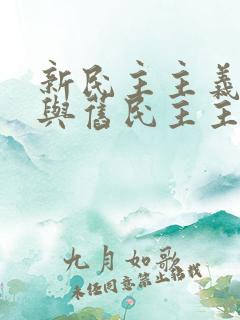 新民主主義
與舊民主主
九月如歌
未经同意禁止转载